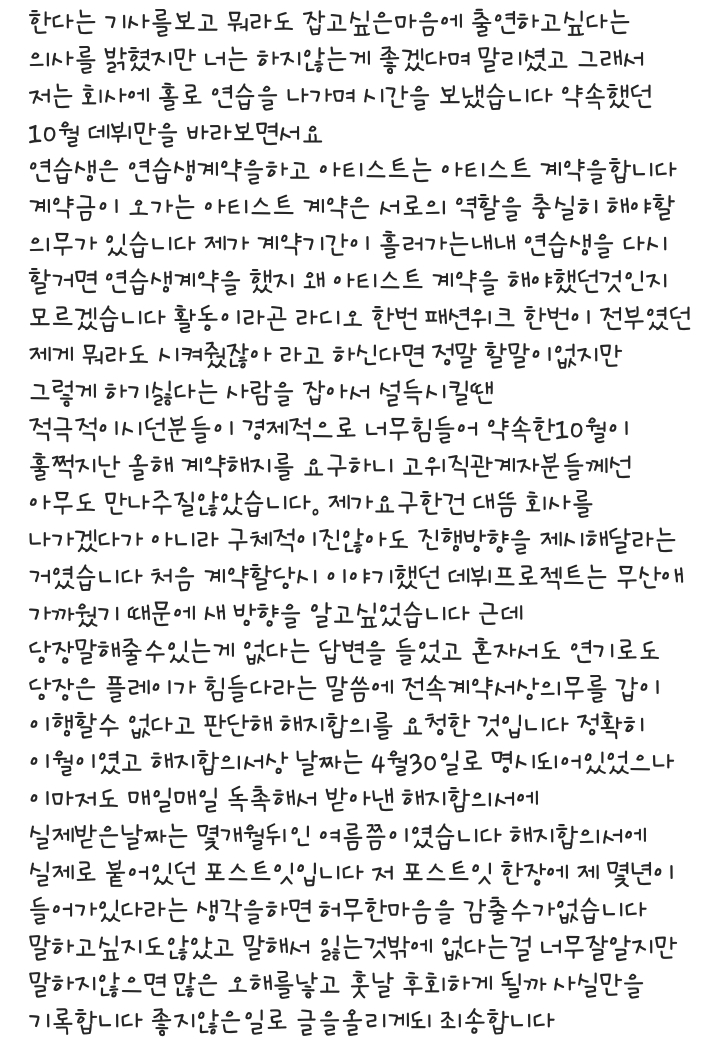 한다는 기사를보고 뭐라도 잡고싶은마음에 출연하고싶다는
의사를 밝혔지만 너는 하지않는게 좋겠다며 말리셨고 그래서
저는 회사에 홀로 연습을 나가며 시간을 보냈습니다 약속했던
10월 데뷔만을 바라보면서요
연습생은 연습생계약을하고 아티스트는 아티스트 계약을합니다
계약금이 오가는 아티스트 계약은 서로의 역할을 충실히 해야할
의무가 있습니다 제가 계약기간이 흘러가는내내 연습생을 다시
할거면 연습생계약을 했지 왜 아티스트 계약을 해야했던것인지
모르겠습니다 활동이라곤 라디오 한번 패션위크 한번이 전부였던
제게 뭐라도 시켜줬잖아 라고 하신다면 정말 할말이없지만
그렇게 하기싫다는 사람을 잡아서 설득시킬땐
적극적이시던분들이 경제적으로 너무힘들어 약속한10월이
훌쩍지난 올해 계약해지를 요구하니 고위직관계자분들께선
아무도 만나주질않았습니다. 제가요구한건 대뜸 회사를
나가겠다가 아니라 구체적이진않아도 진행방향을 제시해달라는
거였습니다 처음 계약할당시 이야기했던 데뷔프로젝트는 무산에
가까웠기 때문에 새 방향을 알고싶었습니다 근데
당장말해줄수있는게 없다는 답변을 들었고 혼자서도 연기로도
당장은 플레이가 힘들다라는 말씀에 전속계약서상의무를 갑이
이행할수 없다고 판단해 해지합의를 요청한 것입니다 정확히
이월이였고 해지합의서상 날짜는 4월30일로 명시되어있었으나
이마저도 매일매일 독촉해서 받아낸 해지합의서에
실제받은날짜는 몇개월뒤인 여름쯤이였습니다 해지합의서에
실제로 붙어있던 포스트잇입니다 저 포스트잇 한장에 제 몇년이
들어가있다라는 생각을하면 허무한마음을 감출수가없습니다
말하고싶지도않았고 말해서 잃는것밖에 없다는걸 너무잘알지만
말하지않으면 많은 오해를낳고 훗날 후회하게 될까 사실만을
기록합니다 좋지않은일로 글을올리게되 죄송합니다